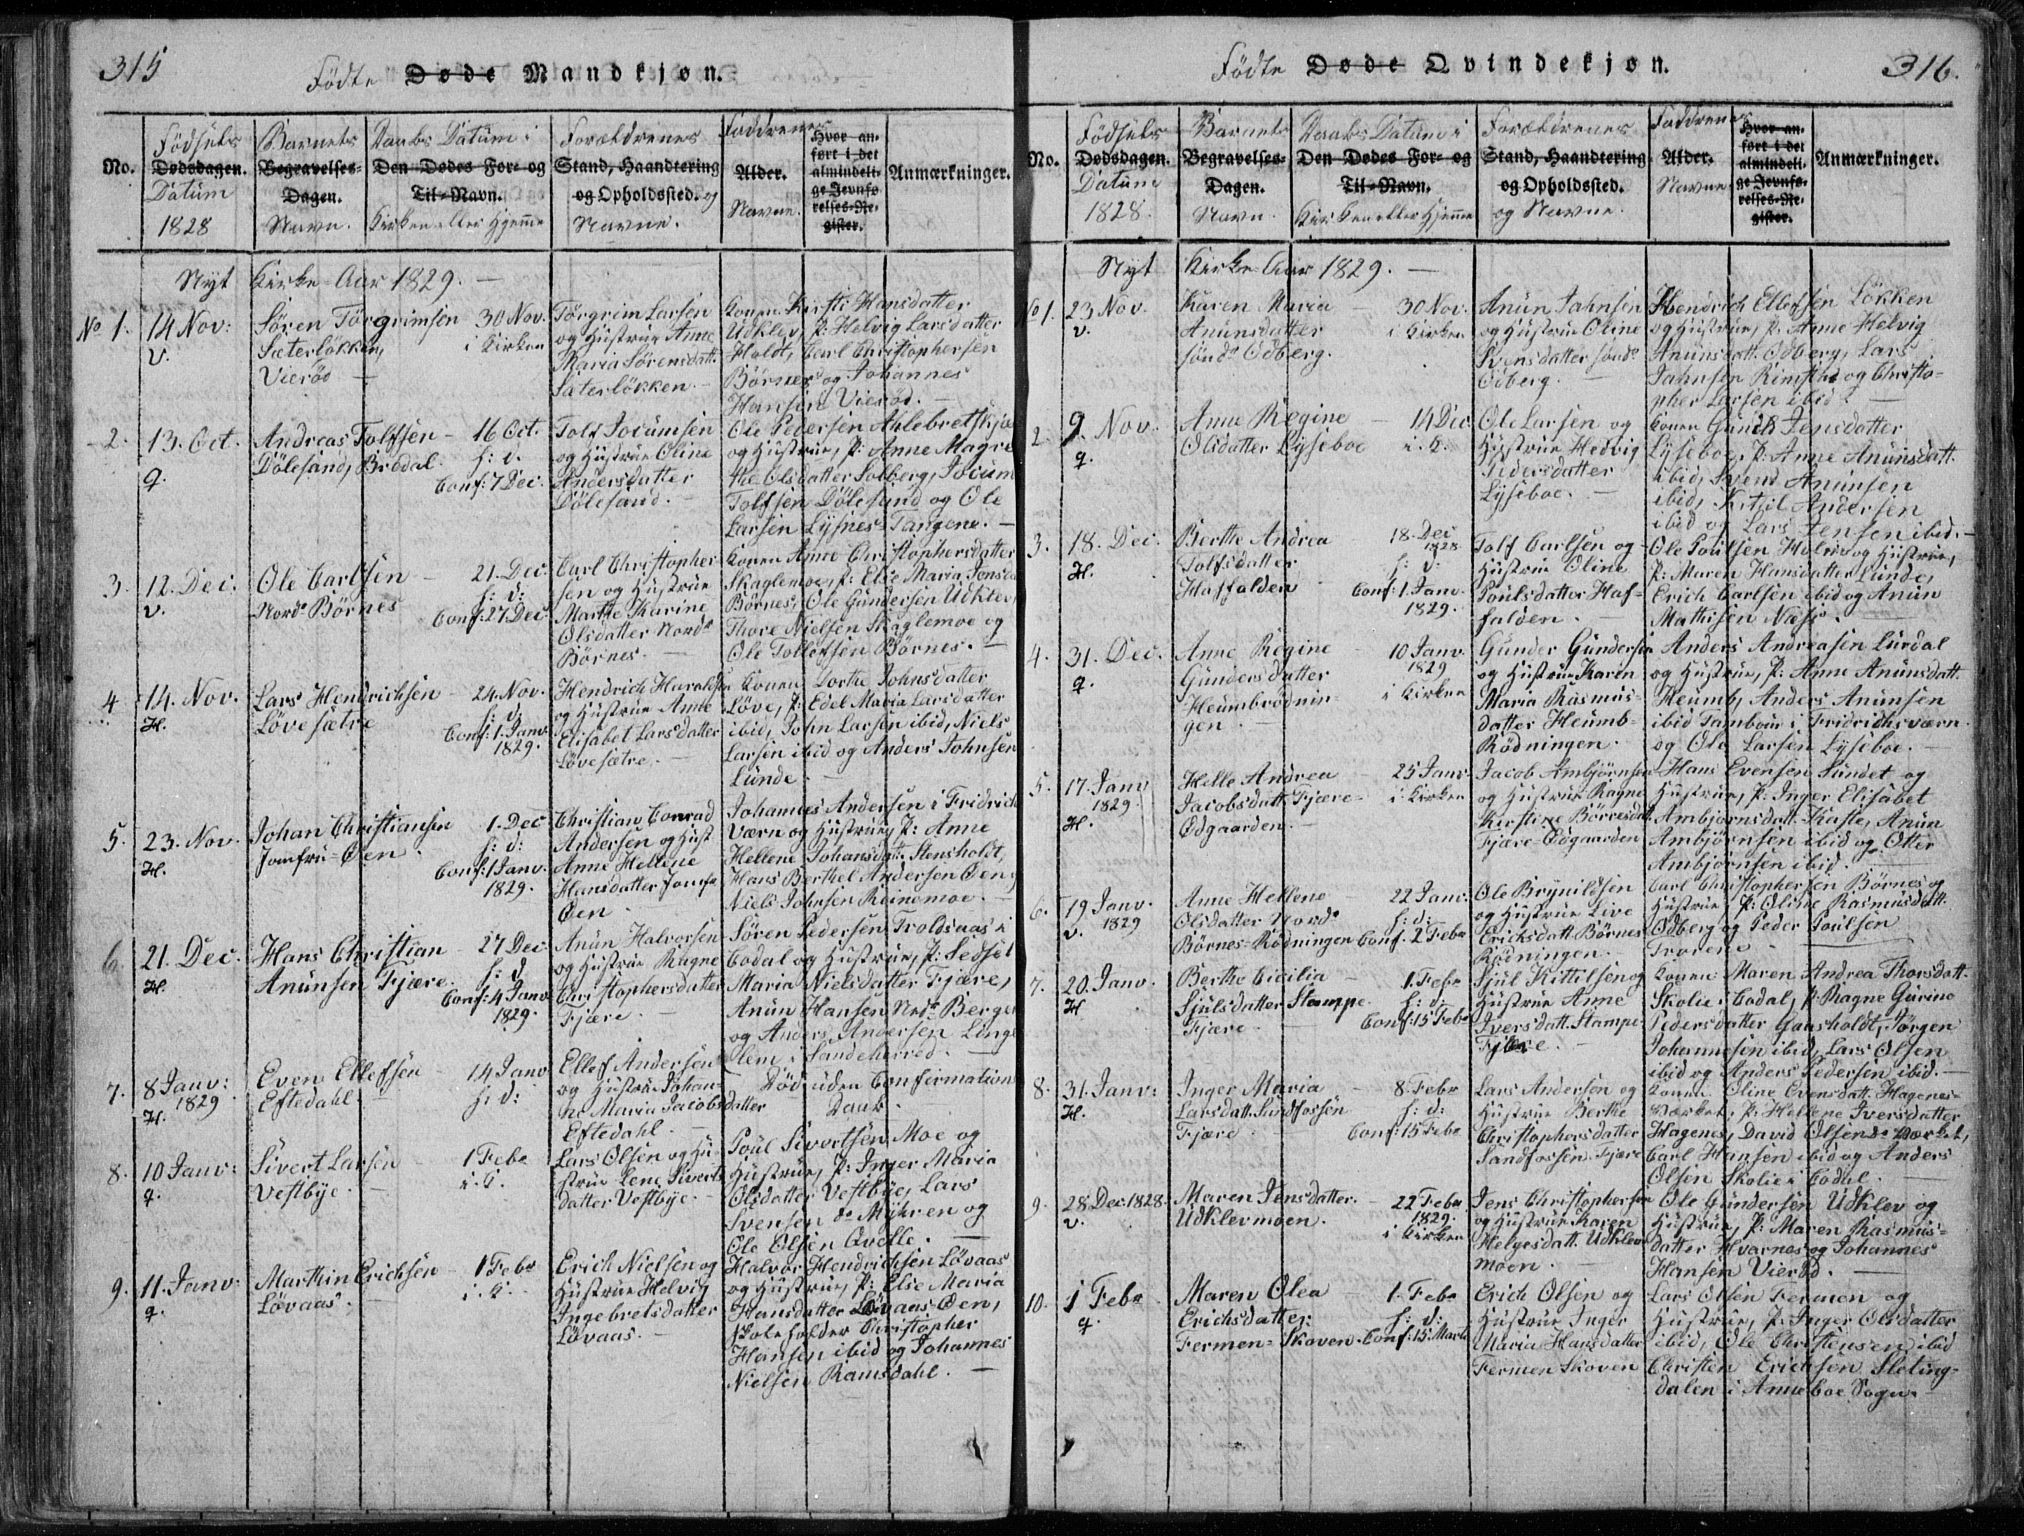 315
Födte Døde Mandkjøn.
No.
Födsels
Dødsdagen.
Datum
1828
Barnets
Begravelses-
Dagen.
Navn.
Daabs Datum i
Den Dødes For- og
Til-Navn.
Kirken eller Hjemme
Forældrenes
Stand, Haandtering
og Opholdssted. og
Navne.
Faddrenes
Alder.
Navne.
Hvor an-
ført i det
almindeli-
ge Jevnfø-
relses-Re-
gister.
Anmærkninger.
Nyt Kirke-Aar 1829. —
No 1.
14 Nov:
v.
Sören Törgrimsen
Sæterløkken,
Vierød —
30 Nov.
i Kirken
Törgrim Larsen
og Hustrue Anne
Maria Sörensdatt.
Sæterløkken. —
Konen Kirsti Hansdatter
Udklev, P: Helvig Larsdatter
Holdt, Carl Christophersen
Børnes og Johannes
Hansen Vierød. —
2.
13. Oct.
q.
Andreas Tolfsen —
Dölesand, Brodal.
16 Oct.
h: d.
Conf: 7 Dec.
Tolf Jocumsen
og Hustrue Oline
Andersdatter
Dölesand. —
Ole Pedersen Ahlebretskjær
og Hustrue, P: Anne Magre
the Olsdatter Solberg, Jocum
Tolfsen Dölesand og Ole
Larsen Lysnes Tangene. —
3.
12. Dec:
v.
Ole Carlsen —
Nord: Börnes
21. Dec
h: d:
Conf: 27 Dec
Carl Christopher
sen og Hustrue
Marthe Karine
Olsdatter Nord:
Börnes. —
Konen Anne Christophersdatter
Skaglemoe, P: Else Maria Jensd:
Börnes, Ole Gundersen Udklev,
Thore Nielsen Skaglemoe og
Ole Tollefsen Børnes. —
4
14. Nov.
H.
Lars Hendrichsen —
Løvesætre
24. Nov.
h: d
Conf: 1. Janv
1829.
Hendrich Haraldsen
og Hustrue Anne
Elisabet Larsdatter
Løvesætre. —
Konen Dorthe Johnsdatter
Løve, P: Edel Maria Larsdatter
ibid, John Larsen ibid, Niels
Larsen ibid og Anders Johnsen
Lunde —
5.
23. Nov.
H.
Johan Christiansen
Jomfru-Øen.
1. Dec
h: d:
Conf: 1 Janv.
1829.
Christian Conrad
Andersen og Hust
Anne Hellene
Hansdatter Jomf:
Øen
Johannes Andersen i Fridrichs
Værn og Hustrue, P: Anne
Hellene Johansdatt. Stensholdt,
Hans Berthel Andersen Øen,
Niels Johnsen Reinemoe. —
6
21. Dec.
H.
Hans Christian —
Anunsen Fjære.
27 Dec
h: d
Conf: 4 Janv
1829.
Anun Halvorsen
og Hustrue Ragne
Christophersdatter
Fjære. —
Sören Pedersen Troldsaas i
Codal og Hustrue, P: Sedsel
Maria Nielsdatter Fjære,
Anun Hansen Nrd: Berge
og Anders Andersen Linge
Olem i Sandeherred. —
7.
8 Janv:
1829
H.
Even Ellefsen —
Eftedahl. —
14 Janv
h: d:
Ellef Andersen
og Hustrue Johan-
ne Maria Jacobsdatter
Eftedahl. —
Död uden Confirmation
Daab.
8.
10 Janv:
q.
Sivert Larsen —
Vestbye. —
1 Febr
i. K.
Lars Olsen og Hu-
strue Lene Siverts
datter Vestbye. —
Poul Sivertsen Moe og
Hustrue, P: Inger Maria
Olsdatter Vestbye, Lars
Svensen do Myhren og
Ole Olsen Qvelle. —
9.
11. Janv:
q.
Marthin Erichsen —
Løvaas. —
1 Febr
i. K. —
Erich Nielsen og
Hustrue Helvig
Ingebretsdatter
Løvaas. —
Halvor Hendrichsen Løvaas
og Hustrue, P: Else Maria
Hansdatter Løvaas-Øen,
Skoleholder Christopher
Hansen ibid og Johannes
Nielsen Ramsdahl. —
Födte Døde Qvindekjøn.
316.
No.
Födsels
Dødsdagen.
Datum
1828.
Barnets
Begravelses-
Dagen.
Navn.
Daabs Datum i
Den Dødes For- og
Til-Navn.
Kirken eller Hjemme
Forældrenes
Stand, Haandtering
og Opholdssted.
og Navne.
Faddrenes
Alder.
Navne
Hvor an-
ført i det
almindeli-
ge Jevnfø-
relses-Re-
gister.
Anmærkninger.
Nyt Kirke-Aar 1829. —
No 1.
23 Nov.
v.
Karen Maria —
Anunsdatter
sönd: Odberg.
30 Nov.
i Kirken
Anun Jahnsen
og Hustrue Oline
Svensdatter sönd:
Odberg. —
Hendrich Ellefsen Løkken
og Hustrue, P: Anne Helvig
Anunsdatt. Odberg, Lars
Jahnsen Rimstad og Christo-
pher Larsen ibid. —
2.
9. Nov.
q.
Anne Regine —
Olsdatter Lyseboe
14 Dec
i. K.
Ole Larsen og
Hustrue Hedvig
Pedersdatter
Lyseboe. —
Konen Gunild Jensdatter
Lyseboe, P: Anne Anunsdatt.
ibid, Svend Anunsen
ibid, Kittil Andersen
ibid og Lars Jensen ibid. —
3.
18. Dec.
H.
Berthe Andrea
Tolfsdatter
Haffalden
18. Dec
1828
h: d:
Conf: 1 Janv.
1829.
Tolf Carlsen og
Hustrue Oline
Poulsdatter Haf-
falden. —
Ole Poulsen Holme og Hustrue,
P: Maren Hansdatter Lunde,
Erich Carlsen ibid og Anun
Mathisen Næss. —
4.
31. Dec.
q.
Anne Regine —
Gundersdatter
Heumbrödnin-
gen. —
10 Janv
1829
i Kirken
Gunder Gundersen
og Hustrue Karen
Maria Rasmus-
datter Heumb-
Rödningen.
Anders Andreasen Lurdal
og Hustrue, P: Anne Anunsdatt.
Heumb, Anders Anunsen
ibid Tambour i Fridrichsværn
og Ole Larsen Lyseboe. —
5.
17. Janv
1829.
H.
Helle Andrea —
Jacobsdatt. Fjære-
Ødgaarden. —
25 Janv.
i Kirken
Jacob Ambjørnsen
og Hustrue Ragne
Kirstine Børresdatt.
Fjære Ødgaarden
Hans Evensen Sundet og
Hustrue, P: Inger Elisabet
Ambjørnsdatt. Kaste, Anun
Ambjørnsen ibid og Otter
Ambjørnsen ibid. —
6.
19 Janv.
v. 1829
Anne Hellene —
Olsdatter Nord:
Börnes-Rödningen
22 Janv.
h: d:
Conf: 2 Febr
Ole Brynildsen
og Hustrue Live
Ericksdatt. Börnes
Rödningen.
Carl Christophersen Börnes og
Hustrue, P: Oline Rasmusdatt.
Odberg og Peder Poulsen
7.
20. Janv.
H
Berthe Cicilia —
Sjulsdatter Stampe.
Fjære —
1. Febr
h: d:
Conf: 15 Febr
Sjul Kittilsen og
Hustrue Anne
Iversdatt. Stampe-
Fjære. —
Konen Maren Andrea Thorsdatt.
Skolie i Codal, P: Ragne Gurine
Pedersdatter Gaasholdt, Jørgen
Johannesen ibid, Lars Olsen
ibid og Anders Pedersen ibid. —
8.
31. Janv:
H.
Inger Maria —
Larsdatt. Sandfossen
Fjære —
8. Febr
h: d:
Conf: 15 Febr
Lars Andersen og
Hustrue Berthe
Christophersdatter
Sandfossen Fjære
Konen Oline Evensdatt. Hagenes-
Værket, P: Hellene Iversdatter
Hagenes, David Olsen do Værket,
Carl Hansen ibid og Anders
Olsen Skolie i Codal. —
9.
28. Dec. 1828.
v.
Maren Jensdatter.
Udklevmoen. —
22 Febr
1829.
i Kirken
Jens Christophersen
og Hustrue Karen
Helgesdatt. Udklev
moen. —
Ole Gundersen Udklev og
Hustrue, P: Maren Rasmus-
datter Hvarnes og Johannes
Hansen Vierød. —
10.
1 Febr
q.
Maren Olea —
Erichsdatter.
Fermen-Skoven.
1. Febr
h: d:
Conf: 15. Marts
Erich Olsen og
Hustrue Inger
Maria Hansdatter
Fermen Skoven
Lars Olsen Fermen og
Hustrue, P: Inger Olsdatter
ibid, Ole Christensen ibid
Christen Erichsen Sleting-
dalen i Anneboe Sogn. —